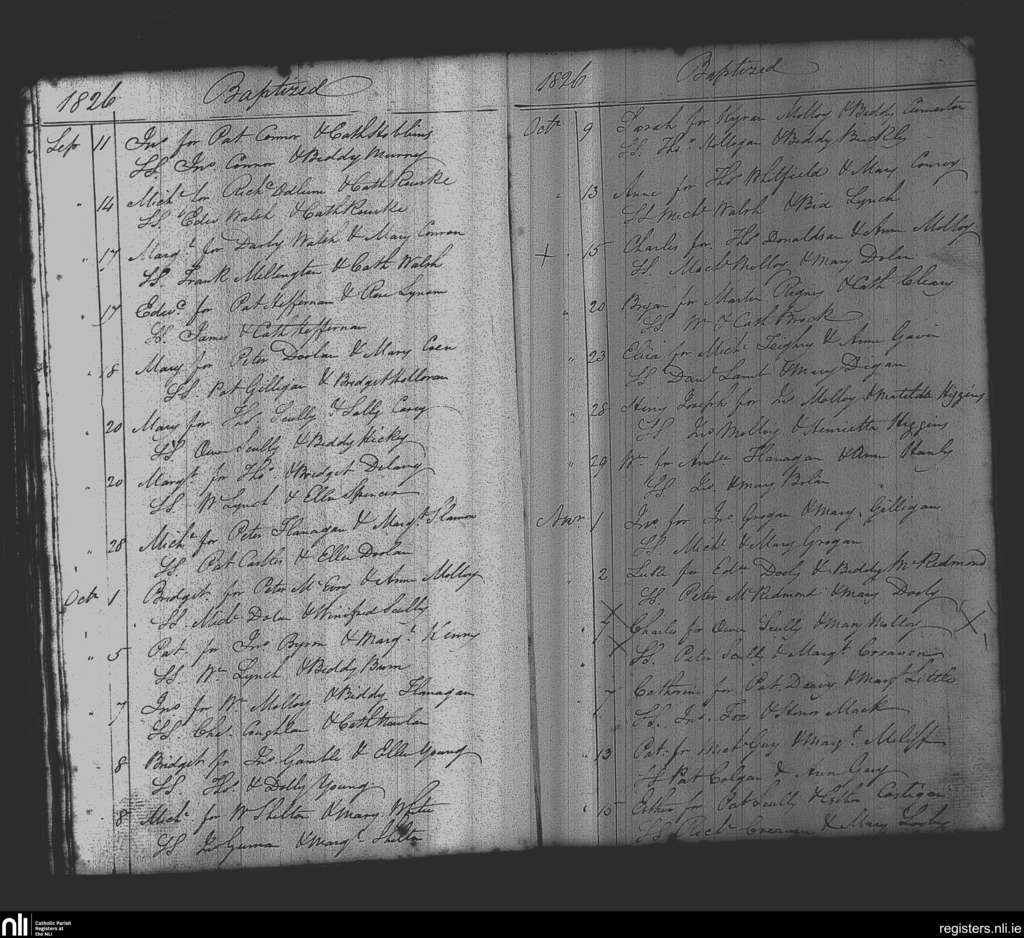 1826 Baptized
Sep 11 Jns for Pat Connor & Cath Robbins
SS. Jns. Connor & Biddy Murray
" 14 Michl for Richd Odlum & Cath Rourke
SS. Edwd Walsh & Cath Rourke
" 17 Margt for Darby Walsh & Mary Conran
SS. Frank Millington & Cath Walsh
" 17 Edwd for Pat Heffernan & Rose Lynam
SS. James & Cath Heffernan
" 18 Mary for Peter Doolan & Mary Coen
SS. Pat Gilligan & Bridget Holloran
" 20 Mary for Thos Scully & Sally Carey
SS. Owen Scully & Biddy Hickey
" 20 Margt for Thos & Bridget Delany
SS. Wm Lynch & Ellen Spencer
" 28 Michl for Peter Flanagan & Margt
SS. Pat & Ellen Doolan
Octr 1 Bridget for Peter McEvoy & Anne Molloy
SS. Michl Dolan & Winifred Scully
" 5 Pat. for Jns Byron & Margt Kenny
SS. Wm Lynch & Biddy Burn
" 7 Jns for Wm Molloy & Biddy Flanagan
SS. Chas. Coughlan & Cath Nowlan
8 Bridget for Jns Gamble & Ellen Young
SS. Thos & Dolly Young
" 8 Michl for W Shelton & Mary White
SS. & Margt Shelton
1826 Baptized
Octr 9 Sarah for Kyran Molloy & Biddy
SS. Thos Hilligan & Biddy Buckley
" 13 Anne for Thos Whitfield & Mary Conroy
SS Michl Walsh & Bid Lynch
+ " 15 Charles for Thos Donaldson & Anne Molloy
SS. Molloy & Mary Dolan
" 20 Bryan for Martin & Cath Cleary
SS. Wm & Cath Brock
" 23 Eliza for Michl Teighry & Anne Gavin
SS Danl Lamb & Mary Digan
" 28 Henry Joseph for Jns Molloy & Matilda Higgins
SS. Jns Molloy & Henrietta Higgins
" 29 Wm for Andw Flanagan & Ann Hanly
SS. Jns & Mary Bolan
Novr 1 Jns for Jns Grogan & Mary Gilligan
SS. Michl & Mary Grogan
" 2 Luke for Edwd Dooly & Biddy McRedmond
SS Peter McRedmond & Mary Dooly
" 4 Charles for Owen Scully & Mary Molloy
SS. Peter Scully & Margt Creaven
" 7 Catherine for Pat & Mary Little
SS. Jns. Fox & Honor Mack
" 13 Pat. for Michl Guy & Margt
SS Pat Colgan & Ann Guy
" 15 Esther for Pat Scully & Esther Costigan
SS Richd Creavan & Mary
nli
Catholic Parish
Registers at
the NLI
registers.nli.ie